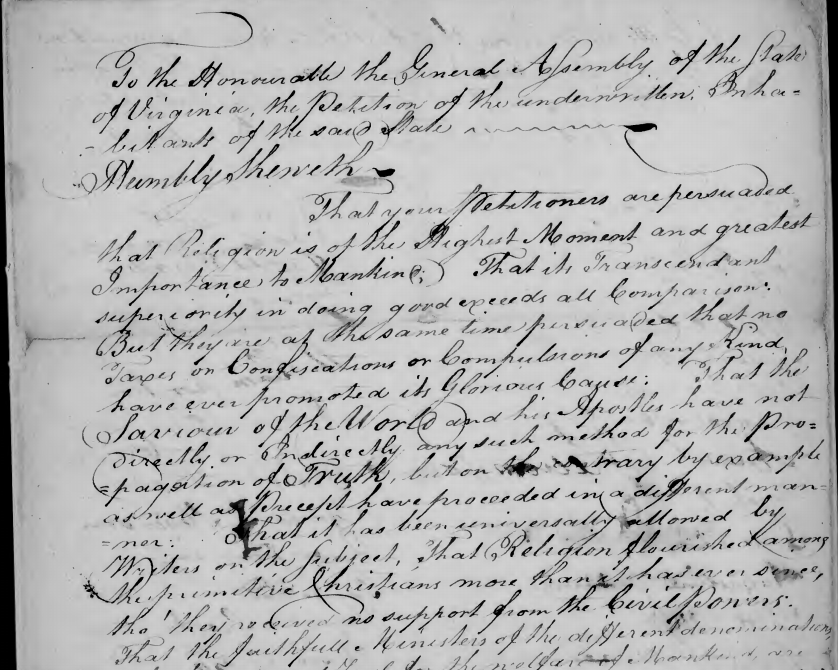 To the Honourable the General Assembly of the State
of Virginia, the Petition of the underwritten, Inha=
=bitants of the said State
Humbly Sheweth
That your Petitioners are persuaded
that Religion is of the Highest Moment and greatest
Importance to Mankind; That its Transcendant
superiority in doing good exceeds all Comparison:
But they are at the same time persuaded that no
Taxes or Confiscations or Compulsions of any Kind,
have ever promoted its Glorious Cause: That the
Saviour of the World and his Apostles have not
directly or Indirectly any such method for the Pro=
=pagation of Truth, but on the trary by example
as well as Precept have proceeded in a different man=
=ner: That it has been universally allowed by
Writers on the Subject, That Religion flourished among
the primitive Christians more than it has ever since,
tho' they received no support from the Civil Powers.
That the faithfull Ministers of the different denominations
for the welfare of Mankind, are